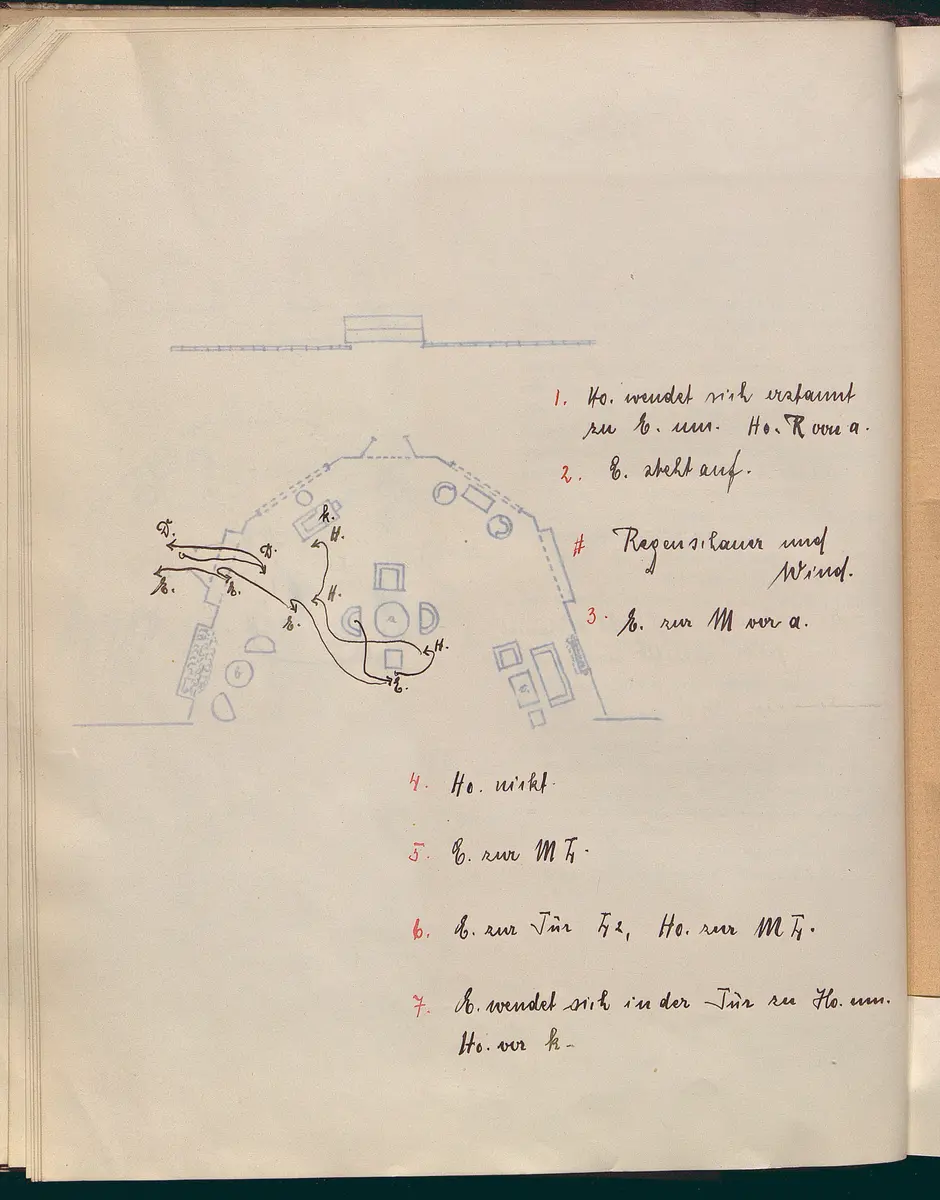 1. Ho. wendet sich erstaunt
zu E. um. Ho. R vor a.
2. E. steht auf.
# Regenschauer und
Wind.
3. E. zur M vor a.
k.
H.
D.
D.
E.
E.
E.
H.
a
H.
E.
4. Ho. nickt.
5. E. zur M
6. E. zur Tür Ho. zur M
7. E. wendet sich in der Tür zu Ho. um.
Ho. vor k.